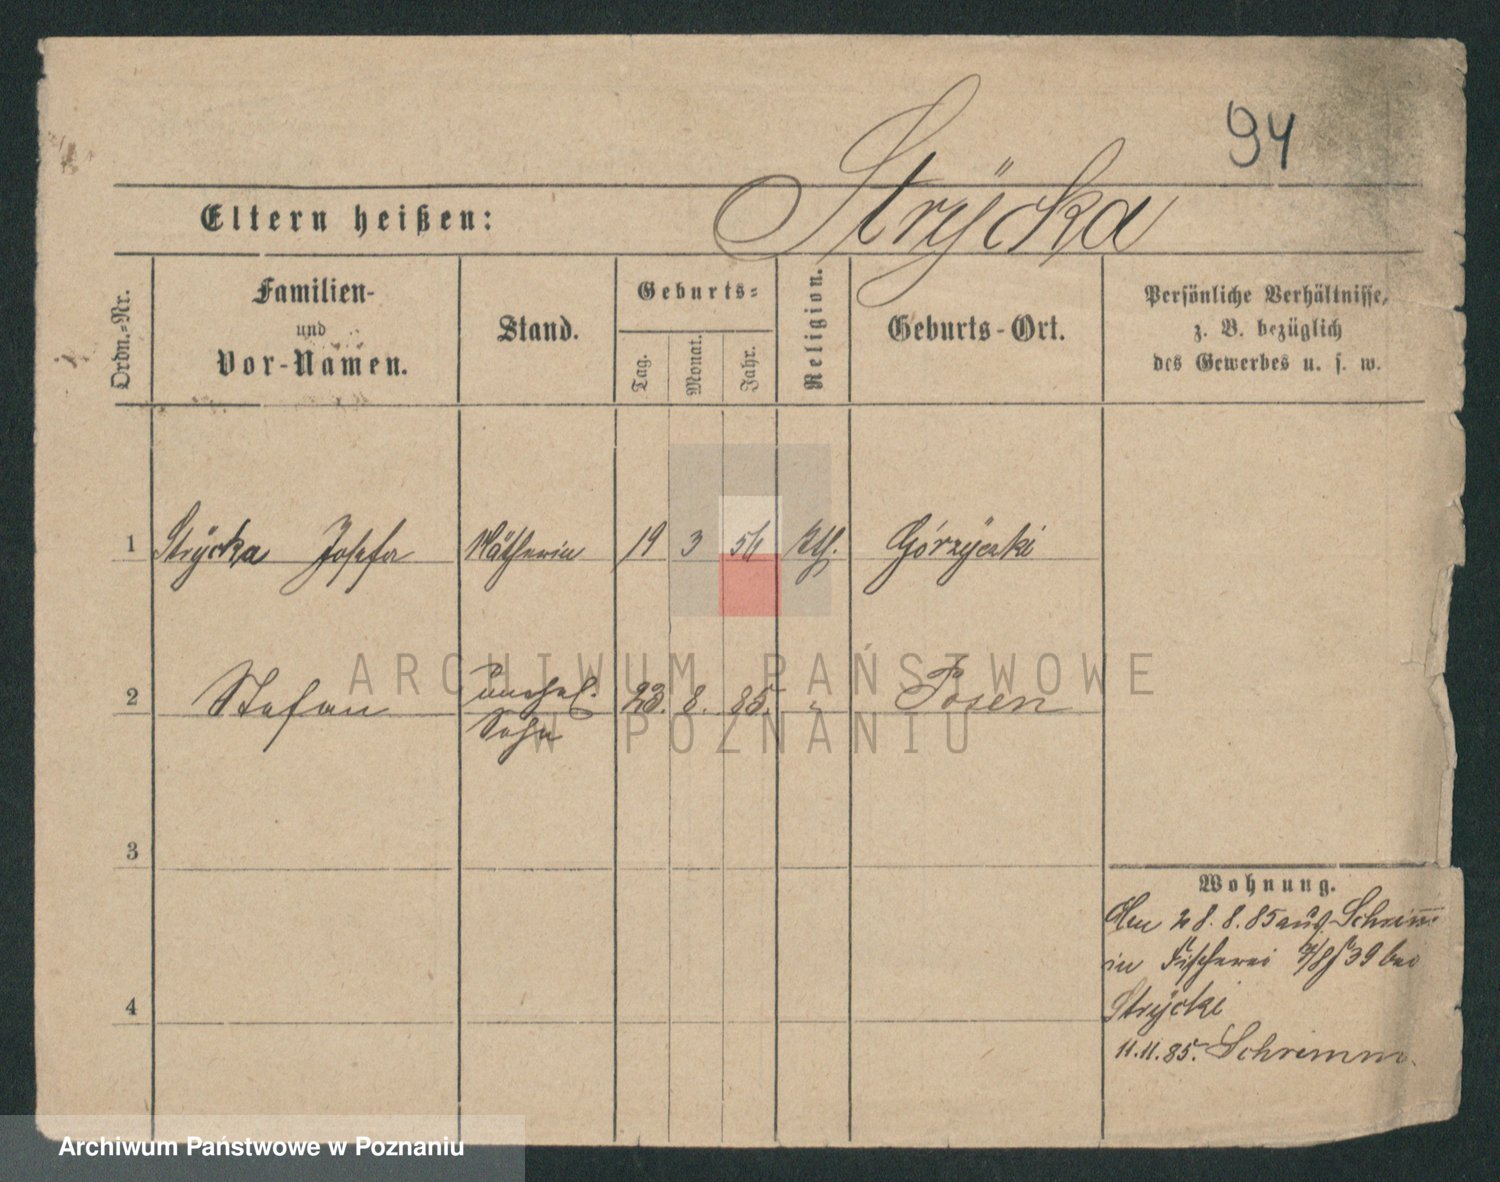 94
Strÿcka
Eltern heißen:
Ordn.-Nr.
Familien-
und
Vor-Namen.
Stand.
Geburts-
Tag.
Monat.
Jahr.
Religion.
Geburts-Ort.
Persönliche Verhältnisse,
z. B. bezüglich
des Gewerbes u. s. w.
1 Strÿcka Josefa Nätherin 19 3 56 kth. Górzÿczki
2 Stefan unehel. 23. 8. 85. " Posen
Sohn
3
4
Wohnung.
28. 8. 85 aus Schrim̅
in Fischerei 7/8 39 bei
Strÿcki
11.11.85. Schrimm.
ARCHIWUM PAŃSTWOWE
W POZNANIU
Archiwum Państwowe w Poznaniu